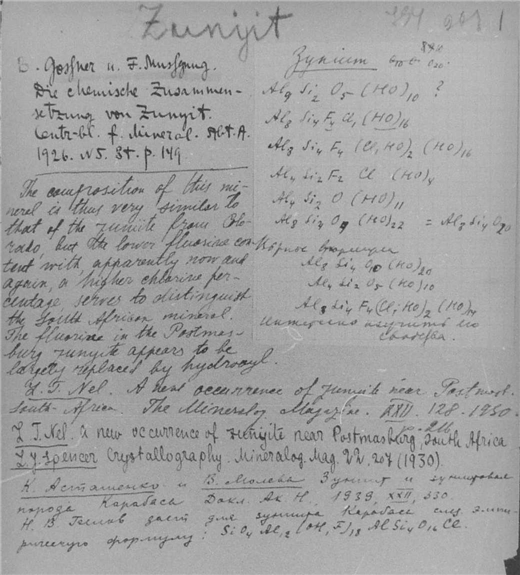 Zunyit
B. Gossner u. F. Mussgnug.
Die chemische Zusammen-
setzung von Zunyit.
Centr-bl. f. Mineral. Abt. A.
1926. N5. St. p. 149
Зуниит
Al8 Si2 O5 (HO)10 ?
Al8 Si4 F3 Cl1 (HO)16
Al8 Si4 F4 (Cl, HO)2 (HO)16
Al4 Si2 F2 Cl (HO)9
Al4 Si2 O (HO)11
Al8 Si3 O9 (HO)22 = Al8 Si4 O20
Al8 Si4 (HO)20
Al4 Si2 O5 (HO)10
Al8 Si4 F4 (Cl, HO)2 (HO)
изучить по
The composition of this mi-
neral is thus very similar to
that of the zunite from Colo-
rado, but the lower fluorine con-
tent with, apparently now and
again, a higher chlorine per-
centage, serves to distinguish
the South African mineral.
The fluorine in the Postmas-
burg zunyite appears to be
largely replaced by hydroxyl.
L. T. Nel. A new occurrence of zunite near Postmasb.
South-Africa. The Mineralog Magazine. XXII. 128-1930.
L. T. Nel. a new occurrence of zunyite near Postmasburg, South Africa
L. J. Spencer Crystallography. Mineralog. Mag. 22, 207 (1930).
К. Асташенко и В. Молева Зуниит и зуниитовая
порода Карабаса Докл. Ак Н. 1939, XXII, 330.
Н. В. Белов дает для зунита Карабаса след. эмпи-
рическую формулу: SiO4 Al12 (OH, F)18 AlSi4O16 Cl.